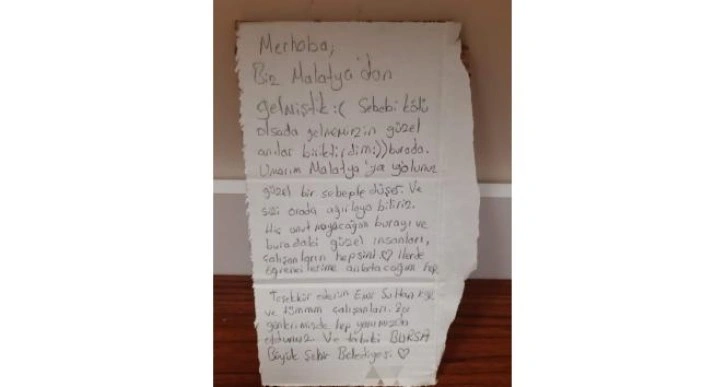 Merhaba;
Biz Malatya'dan
gelmiştik :( Sebebi kötü
olsada gelmemizin güzel
anılar biriktirdim:)) burada.
Umarım Malatya'ya yolunuz
güzel bir sebeple düşer. Ve
sizi orada ağırlaya biliriz.
Hiç unutmayacağım burayı ve
buradaki güzel insanları,
çalışanların hepsini ♡ İlerde
öğrencilerime anlatacağım hep.
Teşekkür ederim Emir Sultan
ve tüm çalışanları.
günlerimizde hep yanımızda
oldunuz. Ve tabiki BURSA
Büyük Şehir Belediyesi ♡